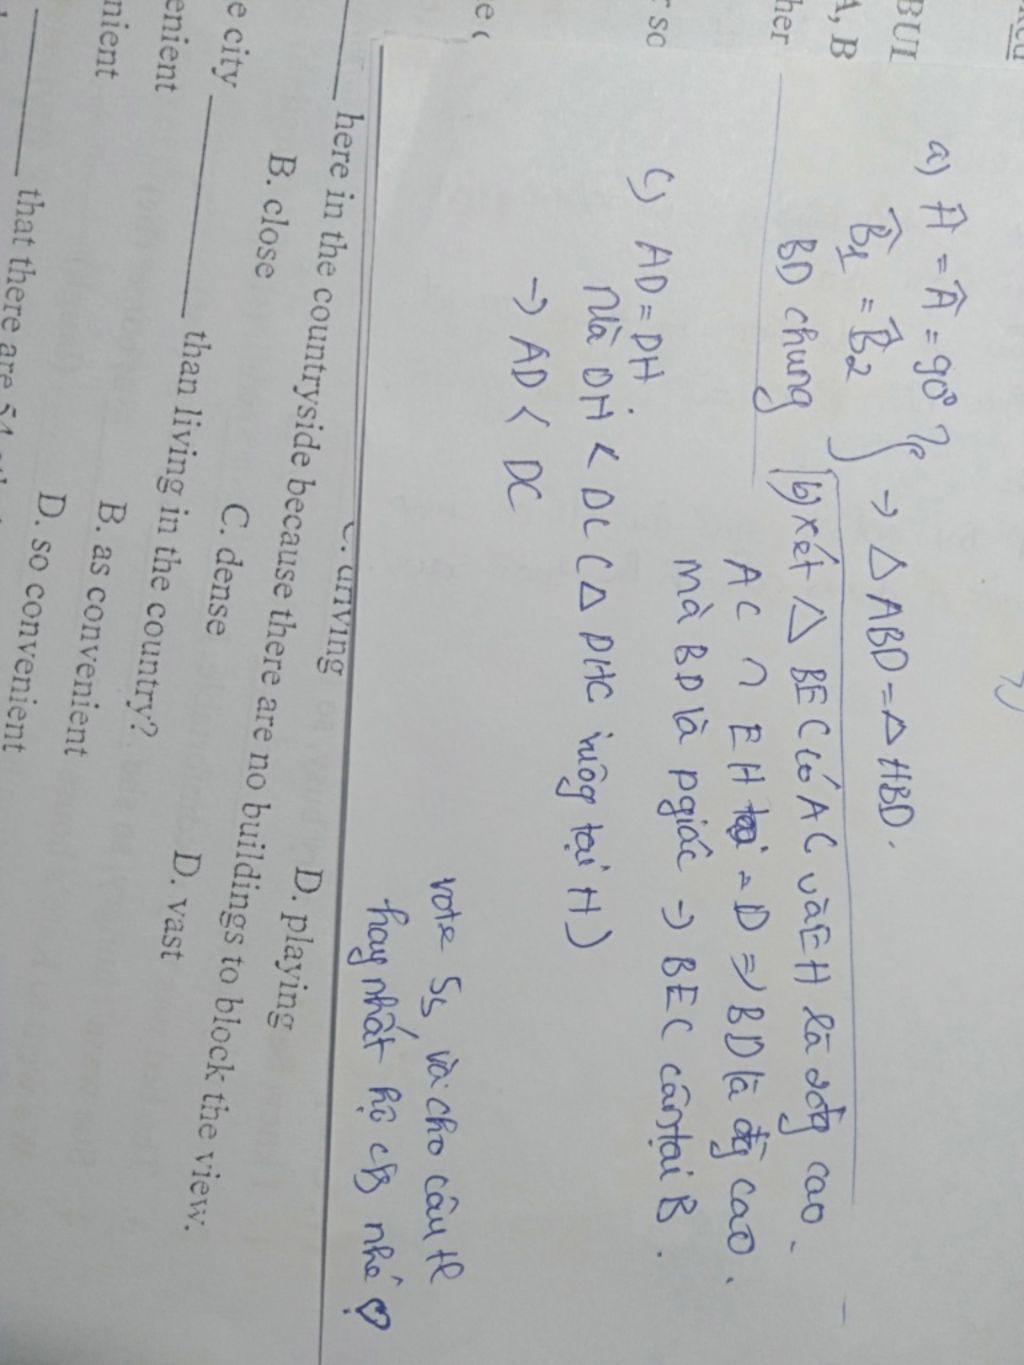 a) Â = Â = 90°
B̂1 = B̂2
BD chung
→ △ ABD = △ HBD.
b) xét △ BEC có AC và EH là đg cao.
AC ∩ EH = D => BD là đg cao.
mà BD là pgiác → BEC cân tại B.
c) AD = DH
mà DH < DC (△ DHC vuông tại H)
→ AD < DC
vote 5s và cho câu tl
hay nhất hộ cj nhé ♡
BUI
A, B
her
r so
C. driving
D. playing
here in the countryside because there are no buildings to block the view.
B. close
C. dense
D. vast
e city
than living in the country?
enient
B. as convenient
nient
D. so convenient
that there are